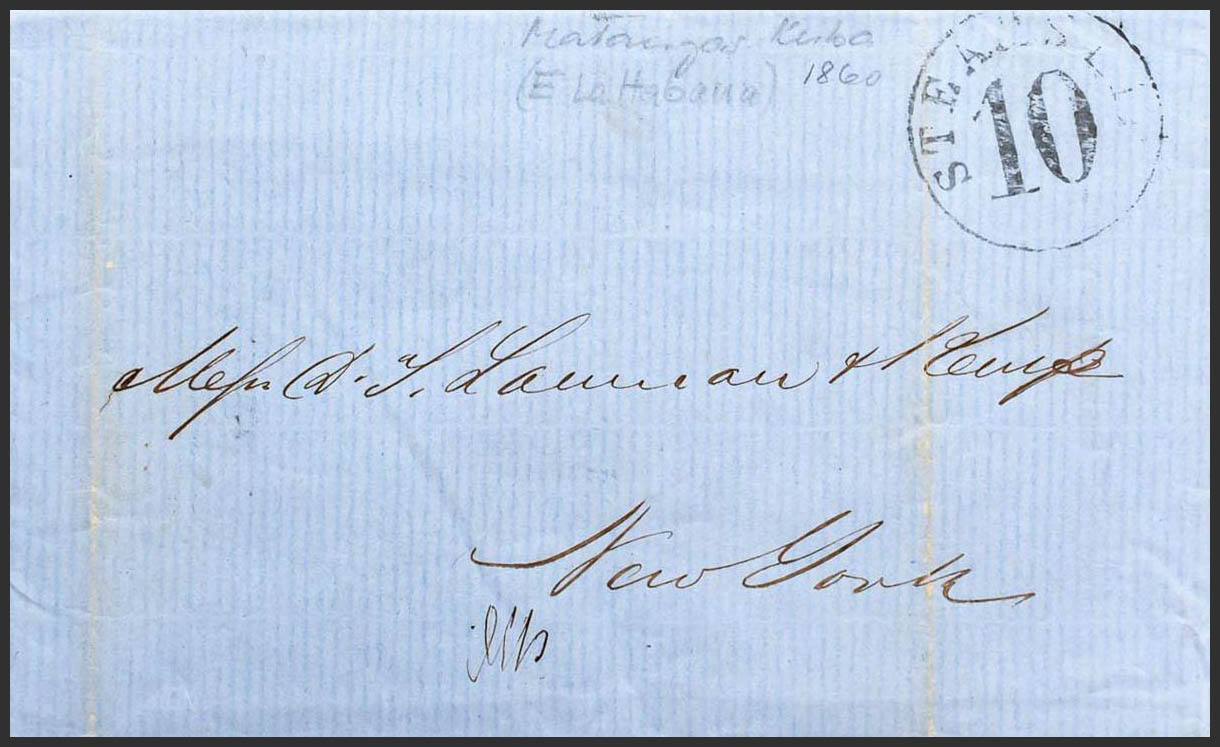 Matanzas Kuba
(E La Habana) 1860
STEAMSHIP
10
Messrs D. T. Lanman & Kemp
New York